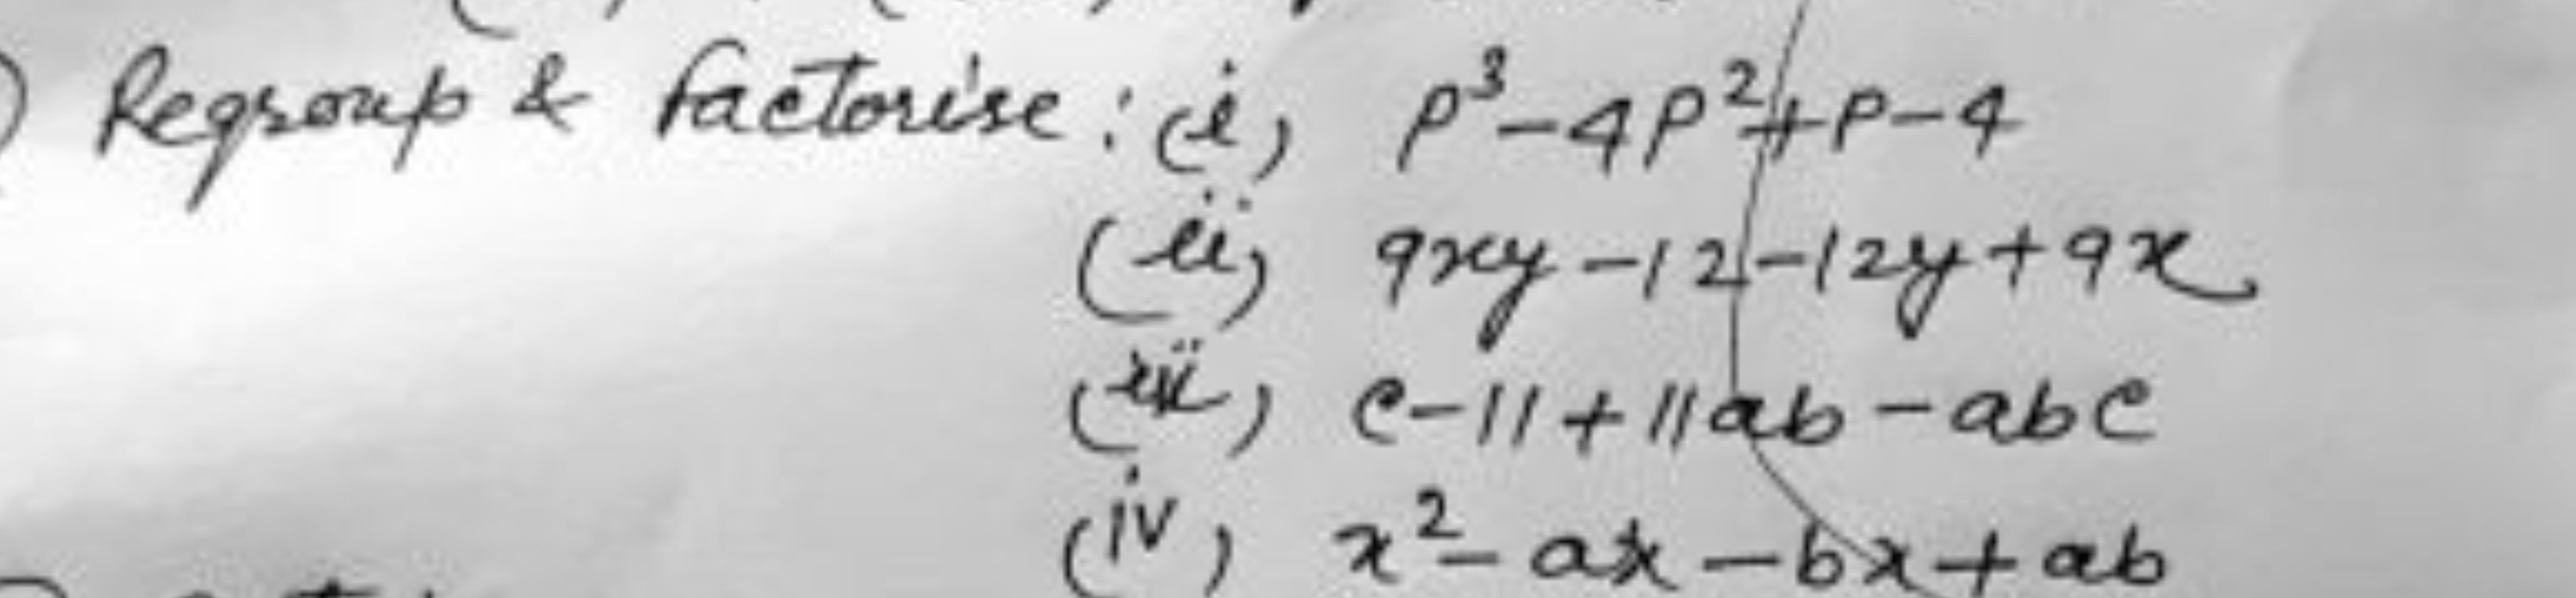 ) Regroup & factorise : (i) p³-4p²+p-4
(ii) 9xy-12-12y+9x
(iii) c-11+11ab-abc
(iv) x²-ax-bx+ab